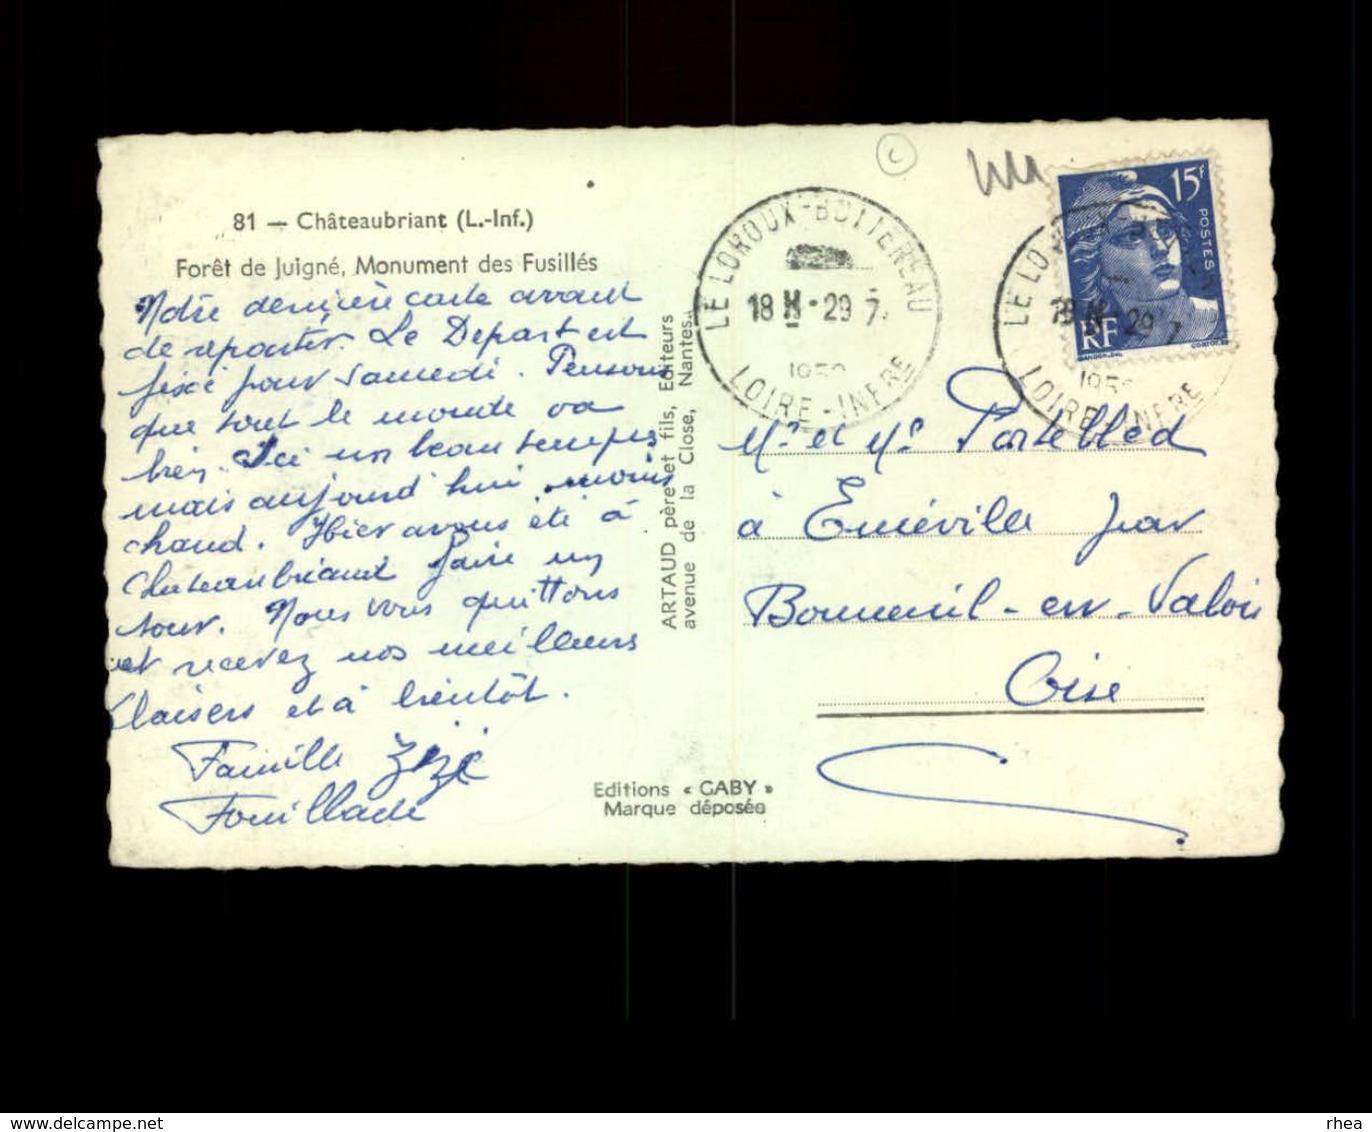 81 — Châteaubriant (L.-Inf.)
Forêt de Juigné, Monument des Fusillés
Notre dernière carte avant
de reporter. Le Depart est
fixé pour samedi. Pensons
que tout le monde va
bien. Ici un beau temps
mais aujourd'hui moins
chaud. Hier avons été à
Chateaubriant faire un
tour. Nous vous quittons
et recevez nos meilleurs
baisers et à bientôt.
Famille Zézé
Fouillade
ARTAUD père et fils, Editeurs
avenue de la Close, Nantes.
Editions « GABY »
Marque déposée
C
LE LOROUX-BOTTEREAU
18 H - 29 7
195
LOIRE-INFRE
15F
POSTES
RF
GANDON.DEL
LE LO
18 H 29 7
195
LOIRE-INFRE
Mr et Me Portebled
à Eméville par
Bonneuil-en-Valois
Oise
rhea
www.delcampe.net